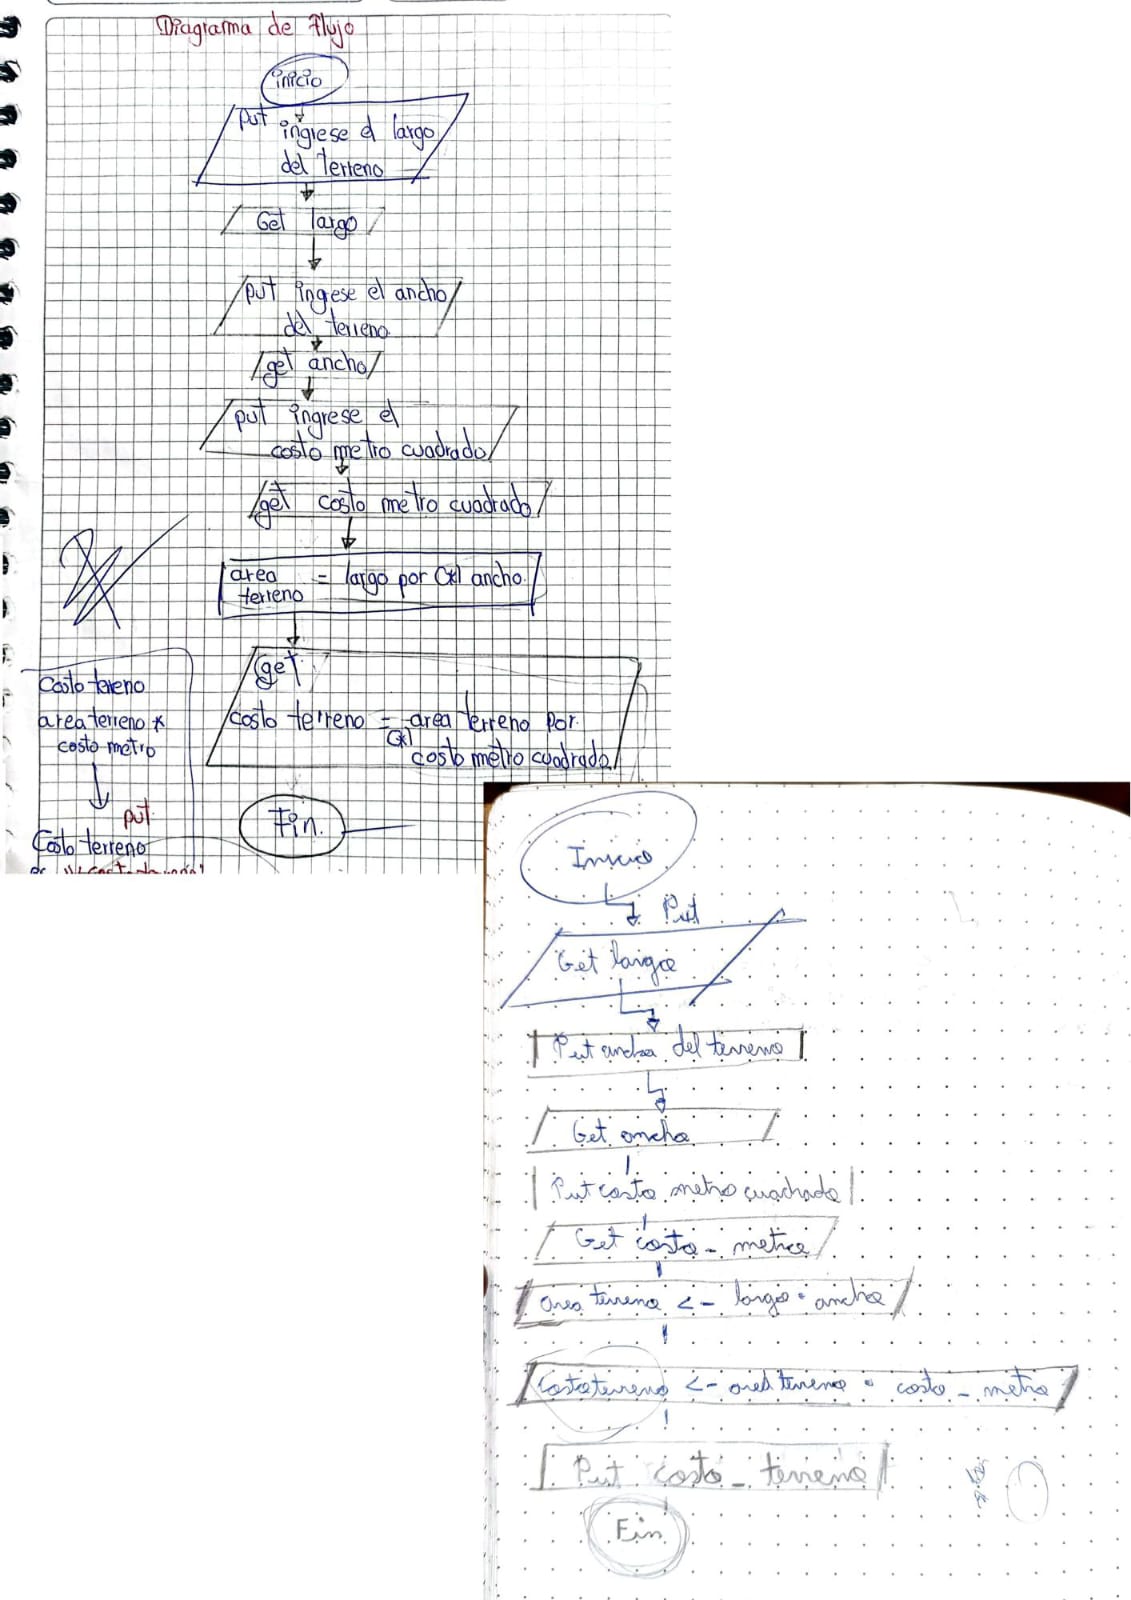 Diagrama de flujo
inicio
put
ingrese el largo
del terreno
Get largo
put ingese el ancho
del terreno
get ancho
put ingrese el
costo metro cuadrado
get costo metro cuadrado
area = largo por (*) ancho
terreno
get
costo terreno = area terreno por
(*) costo metro cuadrado
Fin.
Costo terreno
area terreno *
costo metro
put
Costo terreno
Inicio
Put
Get largo
Put ancho del terreno
Get ancho
Put costo metro cuadrado
Get costo - metro
area terreno <- largo * ancho
Costo terreno <- area terreno * costo - metro
Put costo - terreno
Fin